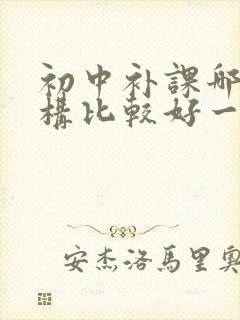 初中补課哪
構比較好一
安杰洛馬里奧